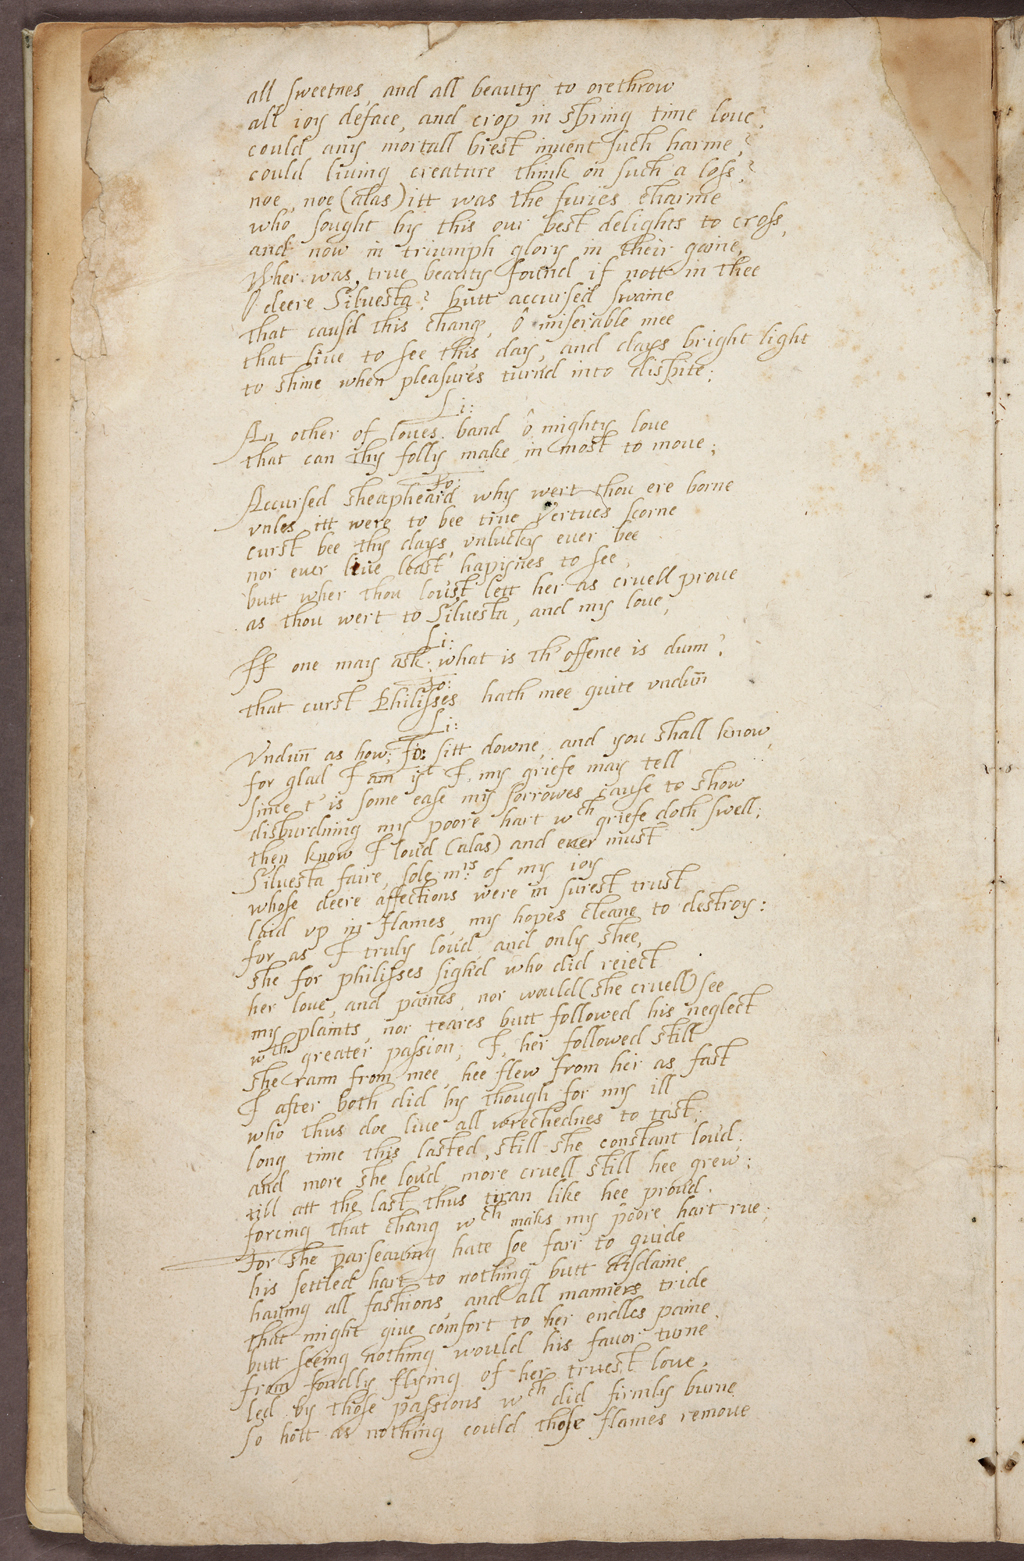 all sweetnes and all beauty to orethrow
all ioy deface, and crop in spring time loue?
could any mortall brest inuent such harme?
could liuing creature think on such a loss?
noe, noe (alas) itt was the furies charme
who sought by this our best delights to cross,
and now in triumph glory in their gaine,
Wher was true beauty found if nott in thee
O deere Siluesta? butt accursed swaine
that caus'd this chang, ô miserable mee
that liue to see this day, and days bright light
to shine when pleasures turnd into dispite;
Li:
An other of loues band ô mighty loue
that can thy folly make in most to moue;
fo:
Accursed sheapheard why wert thou ere borne
vnles itt were to bee true vertues scorne
curst bee thy days, vnlucky euer bee
nor euer liue least hapynes to see,
butt wher thou lou'st lett her as cruell proue
as thou wert to Siluesta, and my loue,
Li:
Iff one may ask, what is th'offence is dunn?
fo:
that curst Philisses hath mee quite vndun̄
Li:
Vndun̄ as how; fo: sitt downe, and you shall know,
for glad I am yt I, my griefe may tell
since t'is some ease my sorrowes cause to show
disburdning my poore hart wch griefe doth swell;
then know I lou'd (alas) and euer must
Siluesta faire, sole mrs of my ioy
whose deere affections were in surest trust
laid vp in flames, my hopes cleane to destroy:
for as I truly lou'd and only shee,
she for philisses sigh'd who did reiect
her loue, and paines, nor would (she cruell) see
my plaints, nor teares butt followed his neglect
wth greater passion; I, her followed still
she rann from mee, hee flew from her as fast
I after both did hy though for my ill
who thus doe liue all wrechednes to tast;
long time this lasted, still she constant lou'd:
and more she lou'd, more cruell still hee grew:
till att the last thus tiran like hee prou'd,
forcing that chang wch maks my poore hart rue;
for she parseauing hate soe farr to guide
his setled hart to nothing butt disdaine,
hauing all fashions, and all manners tride
that might giue comfort to her endles paine,
butt seeing nothing would his fauor turne
from fondly flying of her truest loue,
led by those passions wch did firmly burne
so hott as nothing could those flames remoue